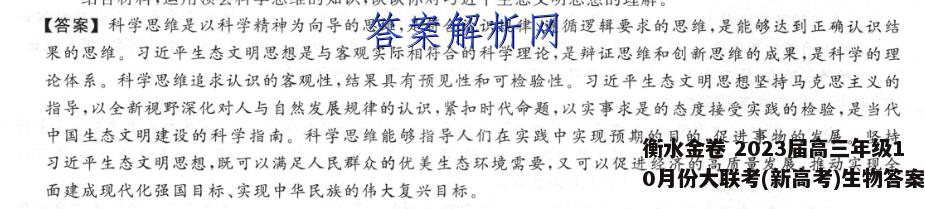 结合材料，运用核会科学思维的知识，谈谈你对习近平生态文明思想的理解。
【答案】科学思维是以科学精神为向导的思 循逻辑要求的思维，是能够达到正确认识结
答案解析网
果的思维。习近平生态文明思想是与客观实际相符合的科学理论，是辩证思维和创新思维的成果，是科学的理
论体系。科学思维追求认识的客观性，结果具有预见性和可检验性。习近平生态文明思想坚持马克思主义的
指导，以全新视野深化对人与自然发展规律的认识，紧扣时代命题，以实事求是的态度接受实践的检验，是当代
中国生态文明建设的科学指南。科学思维能够指导人们在实践中实现预期的目的，促进事物的发展。坚持
习近平生态文明思想，既可以满足人民群众的优美生态环境需要，又可以促进经济的高质量发展，推动实现全
面建成现代化强国目标、实现中华民族的伟大复兴目标。
衡水金卷 2023届高三年级1
0月份大联考(新高考)生物答案